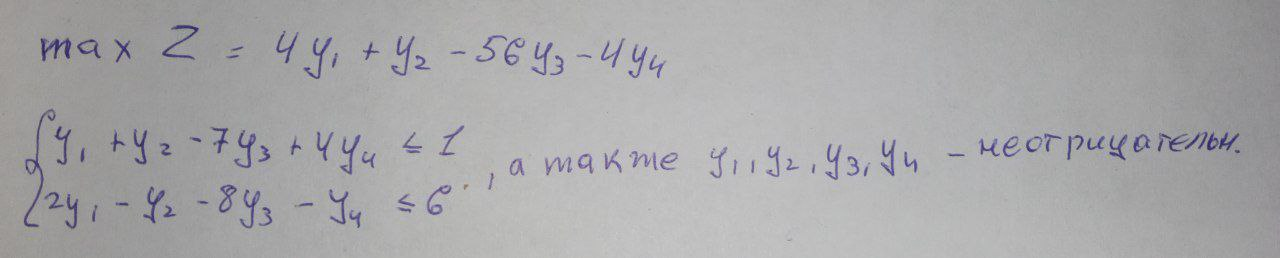 max Z = 4y₁ + y₂ - 56y₃ - 4y₄
{ y₁ + y₂ - 7y₃ + 4y₄ ≤ 1
{ 2y₁ - y₂ - 8y₃ - y₄ ≤ 6 , а также y₁, y₂, y₃, y₄ - неотрицательн.